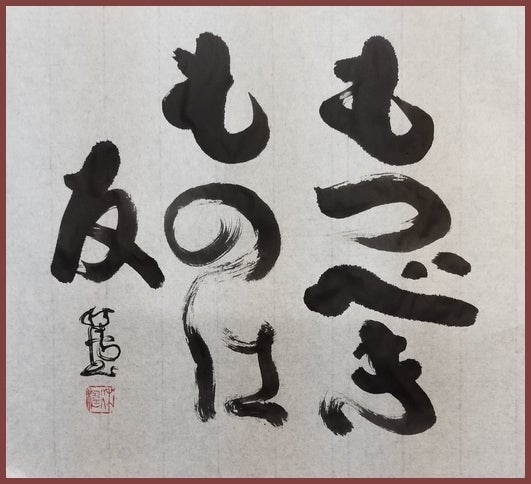 もつべき
ものは
友